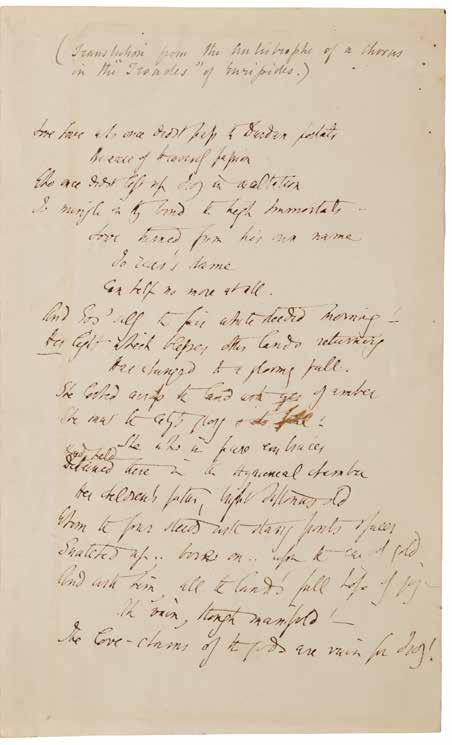 (Translation from the Antistrophe of a Chorus
in the "Troades" of Euripides.)
Love Love who once didst pass the Dardan portals
Because of Heavenly passion
Who once didst lift up Troy in exultation
To mingle in thy bond the high Immortals -
Love turned from his own name
To Zeus's shame
Can help no more at all.
And Eos' self the fair white steeded Morning! -
Her light which blesses other lands returning
Has changed to a gloomy pall.
She looked across the land with eyes of amber
She saw the city's glory & its fall!
She who in pure embraces
Had held
there in the hymeneal chamber
Her children's father, bright Tithonus old
Whom the four steeds with starry fronts &
Snatched up.. borne on.. upon the car of gold
And with him all the land's full hope of joy -
vain, though manifold! -
The love-charms of the gods are vain for Troy!